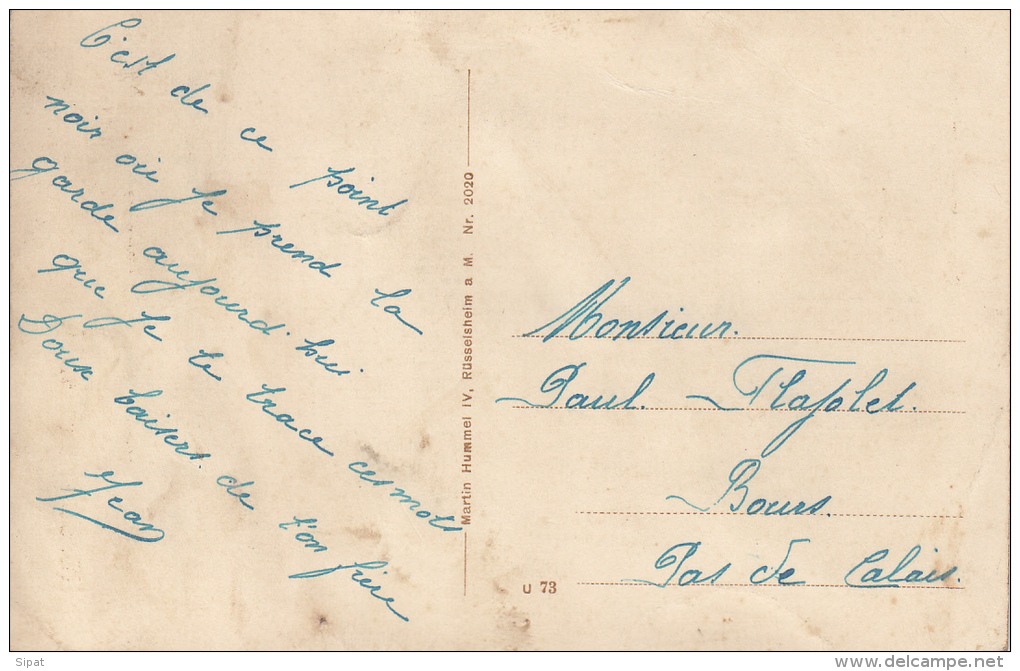 C'est de ce point
noir où je prend la
garde aujourd'hui
que je te trace ces mots
Doux baisers de t'on frère
Jean
Martin Hummel IV, Rüsselsheim a M. Nr. 2020
Monsieur.
Paul. Flajolet.
Bours.
Pas de Calais.
U 73
Sipat
delcampe.net